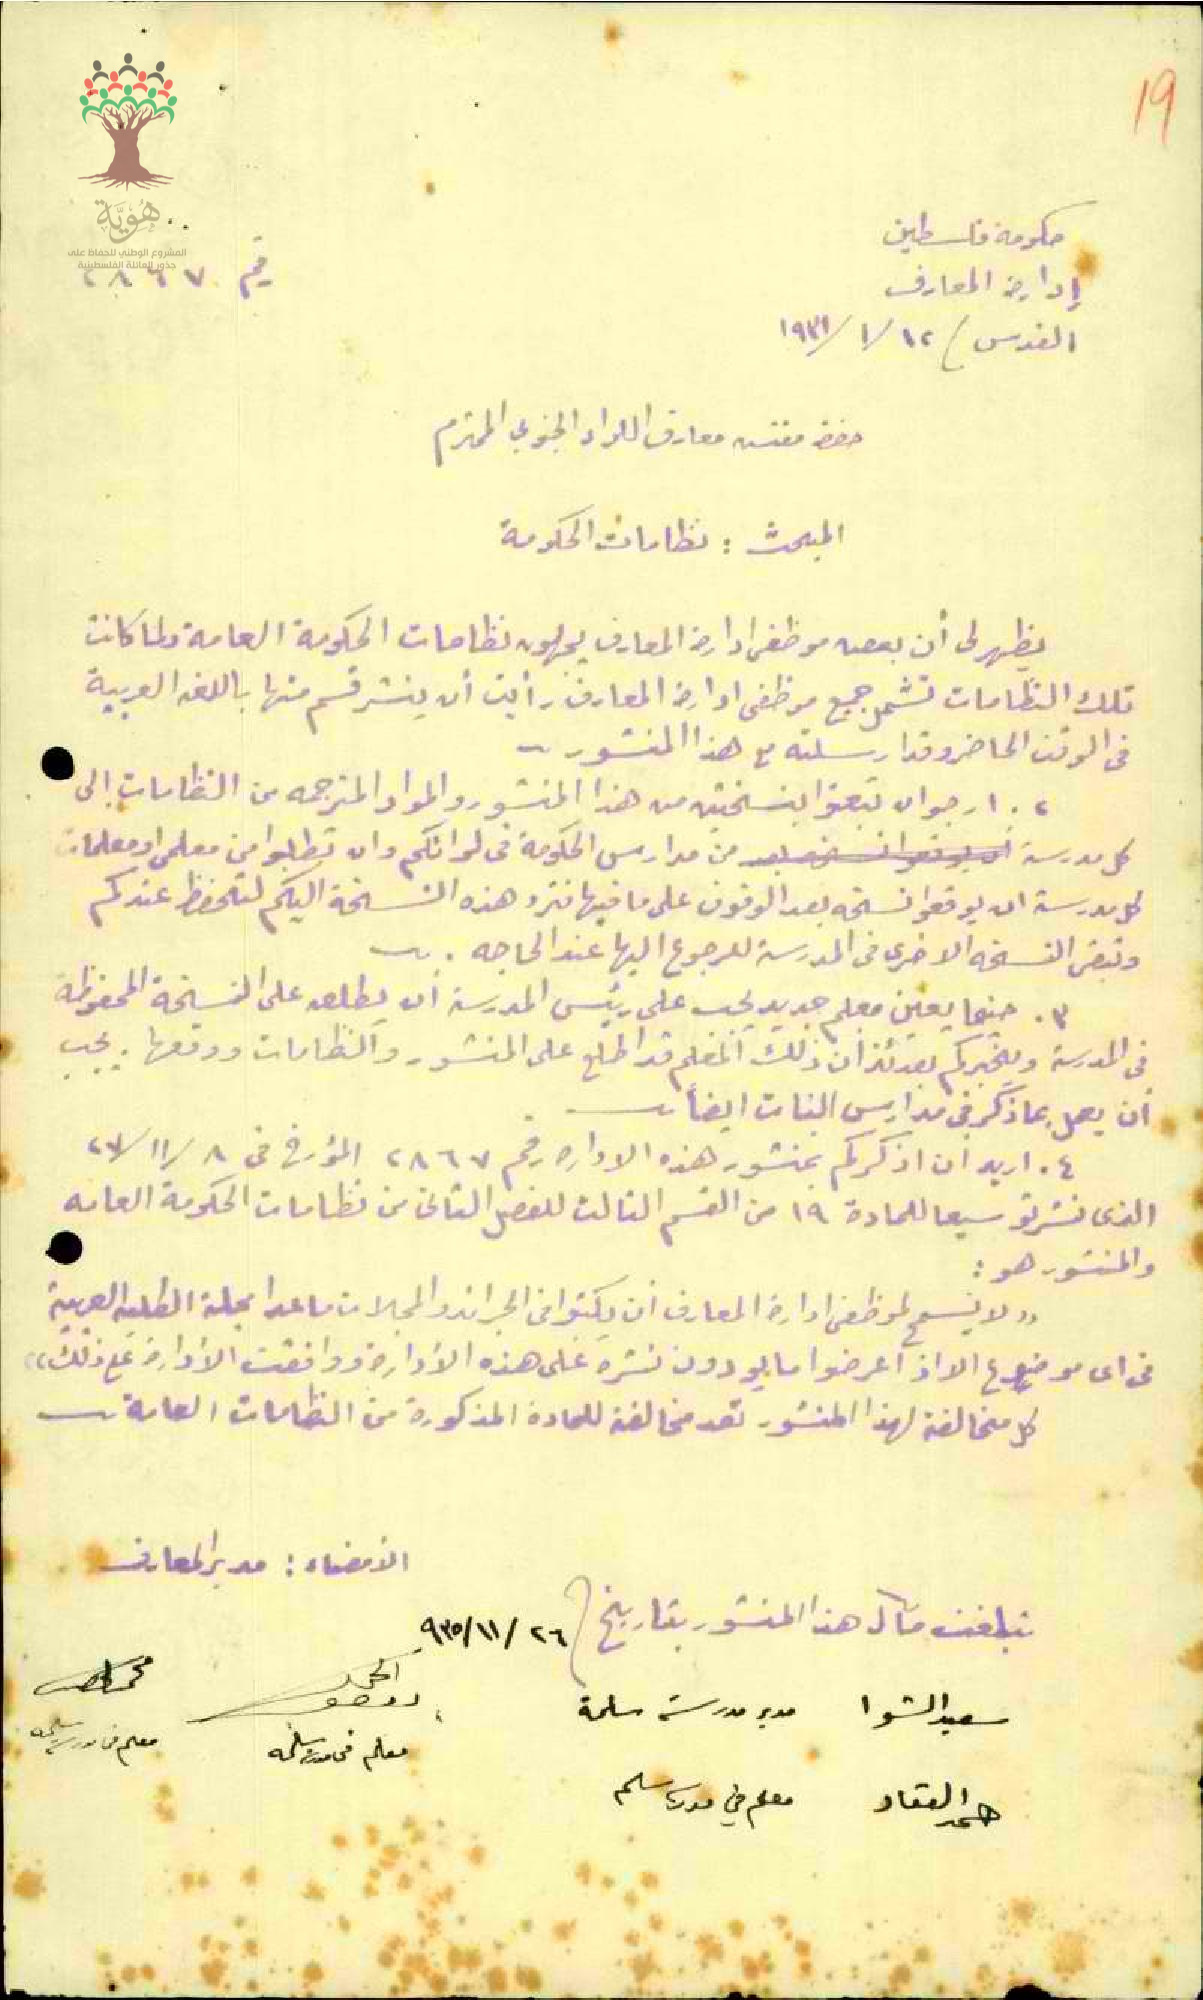 ١٩
هُوِيَّة
المشروع الوطني للحفاظ على
جذور العائلة الفلسطينية
حكومة فلسطين
رقم ٢٨٦٧
إدارة المعارف
القدس / ١٢/ ١/ ١٩٣١
حضرة مفتش معارف اللواء الجنوبي المحترم
المبحث : نظامات الحكومة
يظهر لي أن بعض موظفي ادارة المعارف يجهلون نظامات الحكومة العامة ولما كانت
تلك النظامات تشمل جميع موظفي ادارة المعارف رأيت أن ينشر قسم منها باللغة العربية
في الوقت الحاضر وقد ارسلته مع هذا المنشور
٢ . ارجو ان تبعثوا بنسختين من هذا المنشور والمواد المترجمه من النظامات إلى
كل مدرسة من مدارس الحكومة في لوائكم وان تطلبوا من معلمي او معلمات
كل مدرسة ان يوقعوا نسخة بعد الوقوف على ما فيها فترد هذه النسخة اليكم لتحفظ عندكم
وتبقى النسخه الاخرى في المدرسة للرجوع اليها عند الحاجه .
٣ . حينما يعين معلم جديد يجب على رئيس المدرسة أن يطلعه على النسخة المحفوظة
في المدرسة ويخبركم بعدئذ أن ذلك المعلم قد اطلع على المنشور والنظامات ووقعها . يجب
أن يعمل بما ذكر في مدارس البنات ايضاً
٤ . اريد ان اذكركم بمنشور هذه الاداره رقم ٢٨٦٧ المؤرخ في ٨ /١١/ ٢٧
الذي نشر توسيعا للمادة ١٩ من القسم الثالث للفصل الثاني من نظامات الحكومة العامه
والمنشور هو :
"لا يسمح لموظفي ادارة المعارف أن يكتبوا في الجرائد والمجلات ما عدا مجلة الطلبة العربية
في اي موضوع الا اذا اعرضوا ما يودون نشره على هذه الأدارة ووافقت الأدارة على ذلك"
كل مخالفة لهذا المنشور تعد مخالفة للمادة المذكورة من النظامات العامة
الأمضاء : مدير المعارف
تبلغت مآل هذا المنشور بتاريخ / ٢٦ /١١/ ٩٣٥
سعيد الشوا مدير مدرسة سلمة
معلم في مدرسة سلمه
معلم في مدرسة سلمه
العقاد معلم في مدرسة سلمه